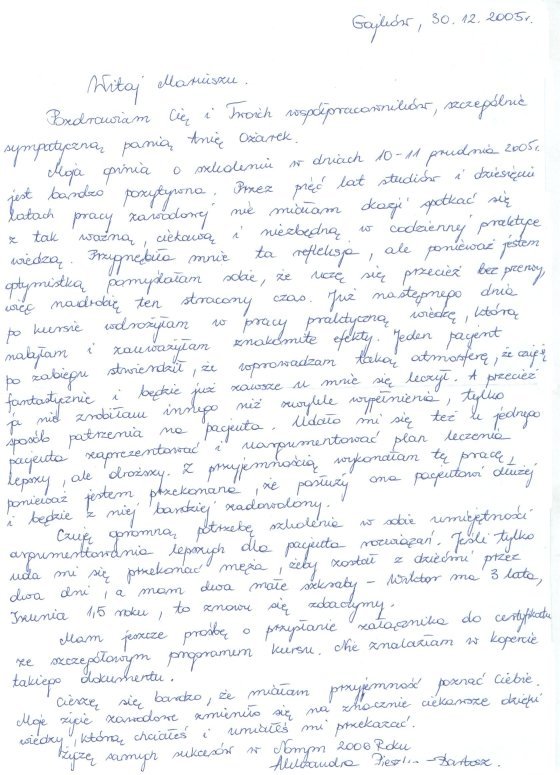 Gajków, 30.12.2005r.
Witaj Mariuszu.
Pozdrawiam Cię i Twoich współpracowników, szczególnie
sympatyczną panią Anię Ożarek.
Moja opinia o szkoleniu w dniach 10-11 grudnia 2005r.
jest bardzo pozytywna. Przez pięć lat studiów i dziesięciu
latach pracy zawodowej nie miałam okazji spotkać się
z tak ważną, ciekawą i niezbędną w codziennej praktyce
wiedzą. Przygnębiła mnie ta refleksja, ale ponieważ jestem
optymistką pomyślałam sobie, że uczę się przecież bez przerwy,
więc nadrobię ten stracony czas. Już następnego dnia
po kursie wdrożyłam w pracy praktyczną wiedzę, którą
nabyłam i zauważyłam znakomite efekty. Jeden pacjent
po zabiegu stwierdził, że wprowadzam taką atmosferę, że czuje się
fantastycznie i będzie już zawsze u mnie się leczył. A przecież
ja nic zrobiłam innego niż zwykłe wypełnienia, tylko
sposób patrzenia na pacjenta. Udało mi się też u jednego
pacjenta zaprezentować i uargumentować plan leczenia
lepszy, ale droższy. Z przyjemnością wykonałam tę pracę,
ponieważ jestem przekonana, że posłuży ona pacjentowi dłużej
i będzie z niej bardziej zadowolony.
Czuję ogromną potrzebę szkolenia w sobie umiejętności
argumentowania lepszych dla pacjenta rozwiązań. Jeśli tylko
uda mi się przekonać męża, żeby został z dziećmi przez
dwa dni, a mam dwa małe szkraby - Wiktor ma 3 lata,
1,5 roku, to znowu się zobaczymy.
Mam jeszcze prośbę o przysłanie załącznika do certyfikatu
ze szczegółowym programem kursu. Nie znalazłam w kopercie
takiego dokumentu.
Cieszę się bardzo, że miałam przyjemność poznać Ciebie.
Moje życie zawodowe zmieniło się na znacznie ciekawsze dzięki
wiedzy, którą chciałeś i umiałeś mi przekazać.
Życzę samych sukcesów w Nowym 2006 Roku
Aleksandra